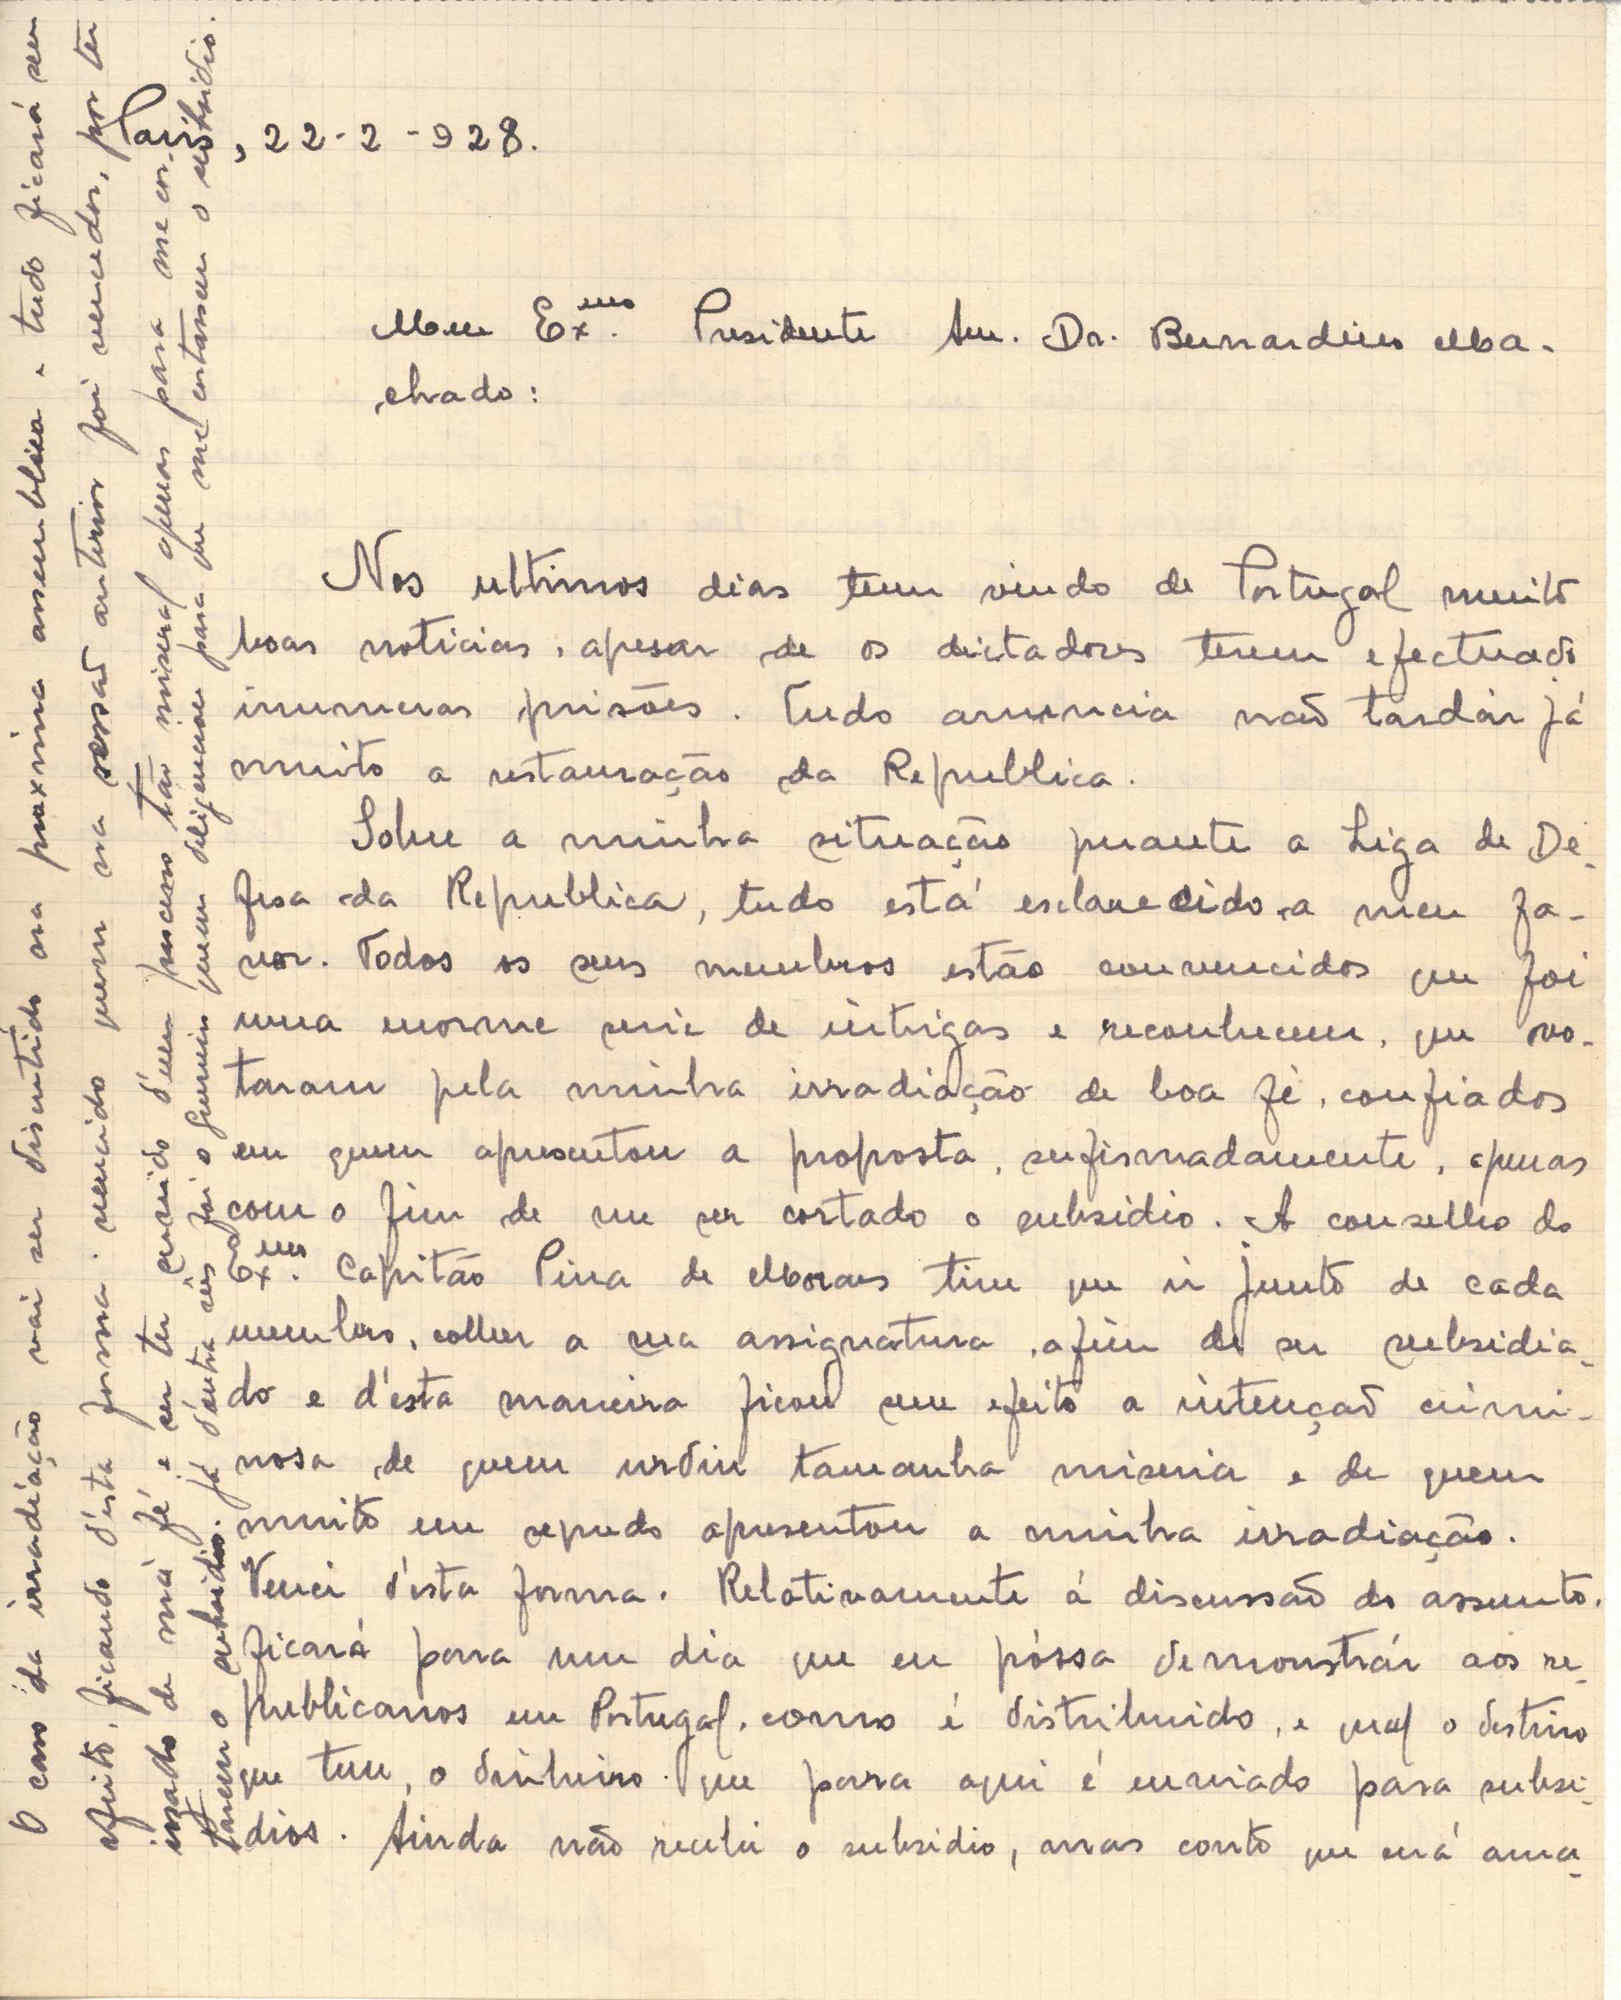 Paris, 22-2-928.
Meu Ex.mo Presidente Snr. Dr. Bernardino Ma-
chado:
Nos ultimos dias teem vindo de Portugal muito
boas noticias, apesar de os dictadores terem efectuado
inumeras prisões. Tudo anuncia não tardár já
muito a restauração da Republica.
Sobre a minha situação perante a Liga de De-
fesa da Republica, tudo está esclarecido a meu fa-
vor. Todos os seus membros estão convencidos que foi
uma enorme serie de intrigas e reconhecem, que vo-
taram pela minha irradiação de boa fé, confiados
em quem apresentou a proposta, enfismadamente, apenas
com o fim de me ser cortado o subsidio. A conselho do
Ex.mo Capitão Pina de Moraes tive que ir junto de cada
membro, colher a sua assignatura, afim de ser subsidia-
do e d'esta maneira ficou sem efeito a intenção crimi-
nosa de quem urdiu tamanha miseria e de quem
muito em segredo apresentou a minha irradiação.
Venci d'esta forma. Relativamente á discussão do assunto,
ficará para um dia que eu póssa demonstrár aos re-
publicanos em Portugal, como é distribuido, e qual o destino
que tem, o dinheiro que para aqui é enviado para subsi-
dios. Ainda não recebi o subsidio, mas conto que será ama-
O caso da irradiação vai ser discutido na proxima assemblêa e tudo ficará sem
efeito, ficando d'esta forma vencido quem na sessão anterior foi vencedor, por ter
usado de má fé e ser ter servido d'um processo tão miseral apenas para me cor-
tarem o subsidio. Já d'outra vês foi o quem diligenciou para que me cortassem o subsidio.